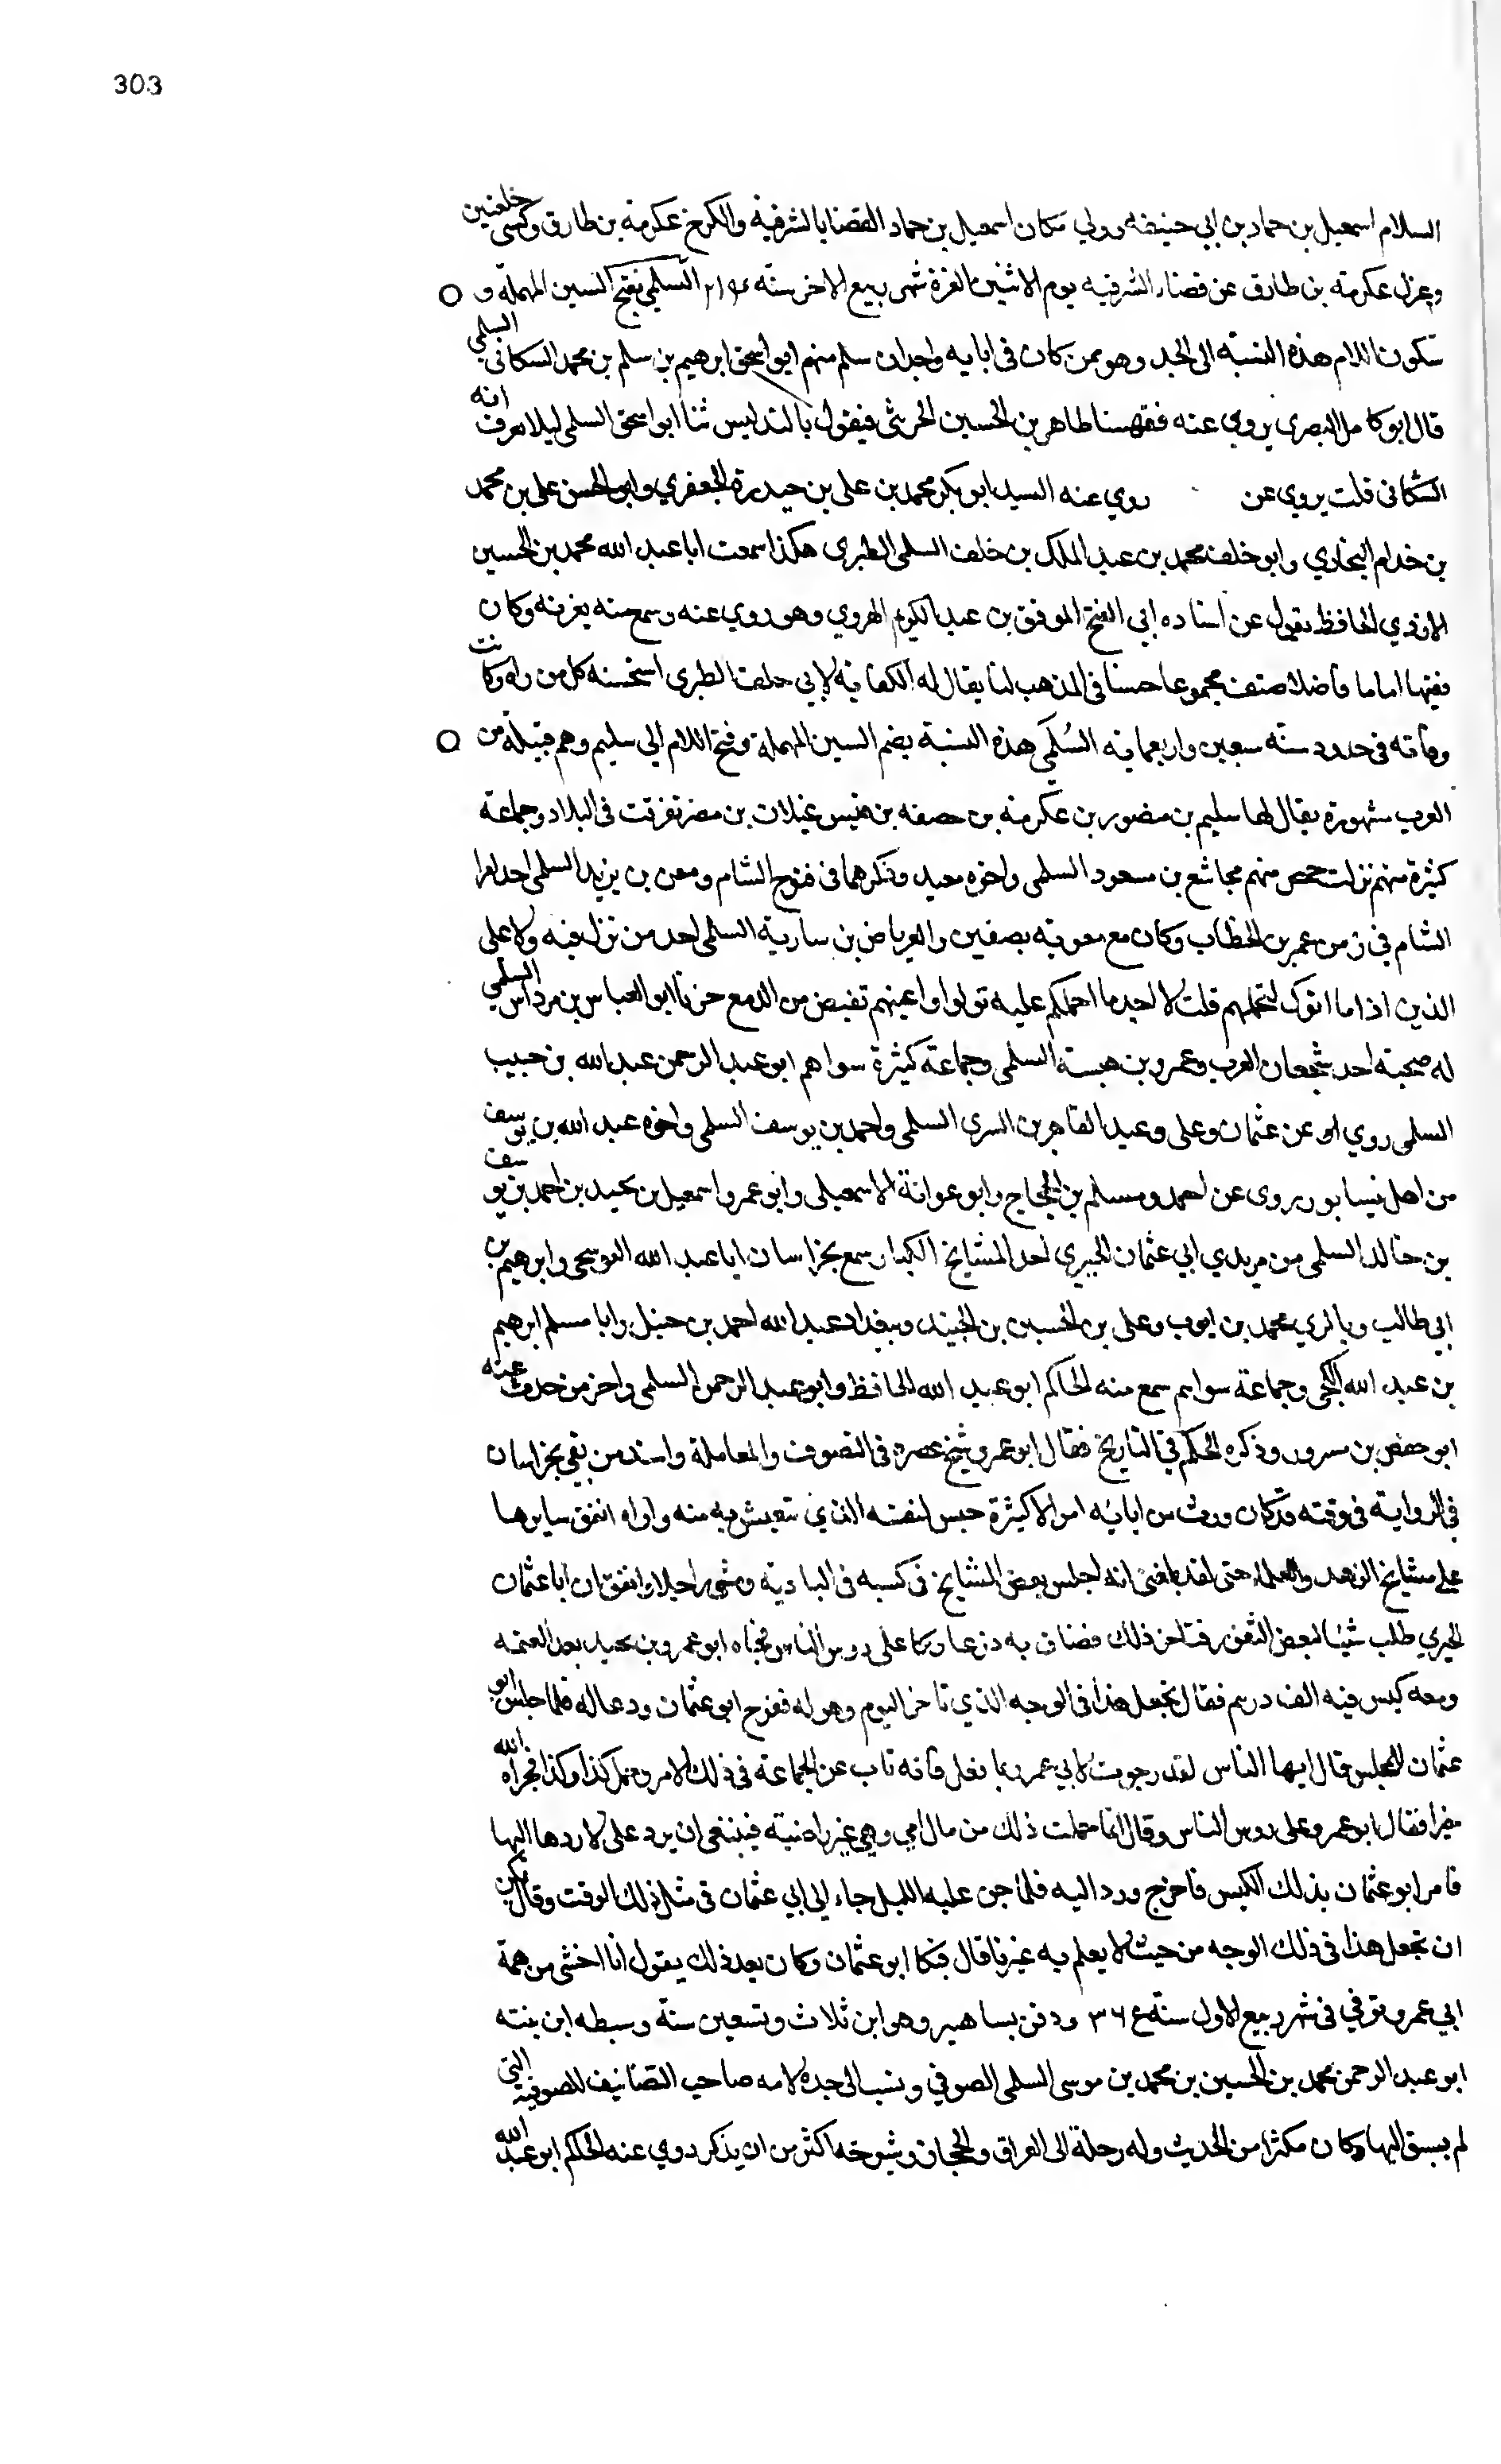 303
السلام اسمعيل بن حماد بن ابي حنيفه وولي مكان اسمعيل بن حماد القضا بالشرقية والكرخ عكرمة بن طارق وكسى خلعتين
وعزل عكرمة بن طارق عن قضاء الشرقيه يوم الاثنين لغرة شهر ربيع الاخر سنة ٢١٤ السلمي بفتح السين المهملة و
سكون اللام هذه النسبة الى الجد وهو ممن كان في ابايه واجداده سلم منهم ابو اسحق ابرهيم بن سلم بن محمد السكاني السلمي
قال ابو كامل البصرى يروي عنه فقيهنا طاهر بن الحسين الحرثى فيقول بالتدليس ثنا ابو اسحق السلمى ليلا يعرف انه
السكانى قلت يروي عن روي عنه السيد ابو بكر محمد بن على بن حيدرة الجعفري وابو الحسن على بن محمد
بن خدام البخاري وابو خلف محمد بن عبد الملك بن خلف السلمى الطبرى هكذا سمعت ابا عبد الله محمد بن الحسين
الحافظ يقول عن استاده ابي الفتح الموفق بن عبد الكريم الهروي وهو روي عنه وسمع منه بغزنه وكان
فقيها اماما فاضلا صنف مجموعا حسنا في المذهب لنا يقال له الكفاية لابي خلف الطبرى استحسنه كل من راه وكانت
وفاته في حدود سنة سبعين واربعماية السُلَمي هذه النسبة بضم السين المهملة وفتح اللام الي سليم وهم قبيلة من
العرب مشهورة يقال لها سليم بن منصور بن عكرمة بن حصفه بن قيس غيلان بن مضر تفرقت في البلاد وجماعة
كثيرة منهم نزلت حمص منهم مجاشع بن مسعود السلمى واخوه معبد وذكرهما في فتوح الشام ومعن بن يزيد السلمى احد امرا
الشام في زمن عمر بن الخطاب وكان مع معوية بصفين والعرباض بن سارية السلمى احد من نزل فيه ولا على
الذين اذا ما اتوك لتحملهم قلت لا اجد ما احملكم عليه تولوا واعينهم تفيض من الدمع حزنا ابو العباس بن مرداس السلمي
له صحبة احد شجعان العرب وعمرو بن عبسة السلمى وجماعة كثيرة سواهم ابو عبد الرحمن عبد الله بن حبيب
السلمى روي عن عثمان وعلى وعبد القاهر بن السرى السلمى واحمد بن يوسف السلمى واخوه عبد الله بن يوسف
من اهل نيسابور يروى عن احمد ومسلم بن الحجاج وابو عوانة الاسمعيلى وابو عمرو اسمعيل بن نجيد بن احمد بن يوسف
بن خالد السلمى من مريدي ابي عثمان الحيري احد المشايخ الكبار سمع بخراسان ابا عبد الله البوسنجى وابرهيم بن
ابي طالب وبالري محمد بن ايوب وعلى بن الحسين بن الجنيد وببغداد عبد الله احمد بن حنبل وابا مسلم ابرهيم
بن عبد الله الكجى وجماعة سواهم سمع منه الحاكم ابو عبد الله الحافظ وابو عبد الرحمن السلمى واخر من حدث عنه
ابو حفص بن مسرور وذكره الحاكم في التاريخ فقال ابو عمرو شيخ عصره في التصوف والمعاملة واسند من بقي بخراسان
في الرواية في وقته وقد كان ورث من ابايه اموالا كثيرة حبس لنفسه الذي يتعيش به منه وانفق سايرها
على مشايخ الزهد والعلماء حتى لقد بلغنى انه اجلس بعض المشايخ في كسبه في البادية ومشي راجلا واتفق ان ابا عثمان
الحيري طلب شيئا لبعض الثغور فتاخر ذلك فضاق به ذرعا وبكا على روس الناس فجاه ابو عمرو بن نجيد بعد العتمة
ومعه كيس فيه الف درهم فقال تجعل هذا في الوجه الذي تاخر اليوم وهو له ففرح ابو عثمان ودعا له فلما جلس ابو
عثمان للمجلس قال ايها الناس لقد رجوت لابي عمرو بما فعل فانه ناب عن الجماعة في ذلك الامر وحمل كذا وكذا فجزاه الله
خيرا فقال ابو عمرو على روس الناس وقال انما حملت ذلك من مال امي وهي غير راضية فينبغى ان يرد على لاردها اليها
فامر ابو عثمان بذلك الكيس فاخرج ورد اليه فلما جن عليه الليل جاء الي ابي عثمان في مثل ذلك الوقت وقال يمكن
ان تجعل هذا في ذلك الوجه من حيث لا يعلم به غيرنا قال فبكا ابو عثمان وكان بعد ذلك يقول انا اخشى من همة
ابي عمرو توفي في شهر ربيع الاول سنة ٣٦٤ ودفن وهو ابن ثلاث وتسعين سنة وسبطه ابن بنته
ابو عبد الرحمن محمد بن الحسين بن محمد بن موسى السلمى الصوفي ونسب الى جده لامه صاحب التصانيف للصوفية التي
لم يسبق اليها وكان مكثرا من الحديث وله رحلة الى العراق والحجاز وشيوخه اكثر من ان يذكر روي عنه الحاكم ابو عبد الله